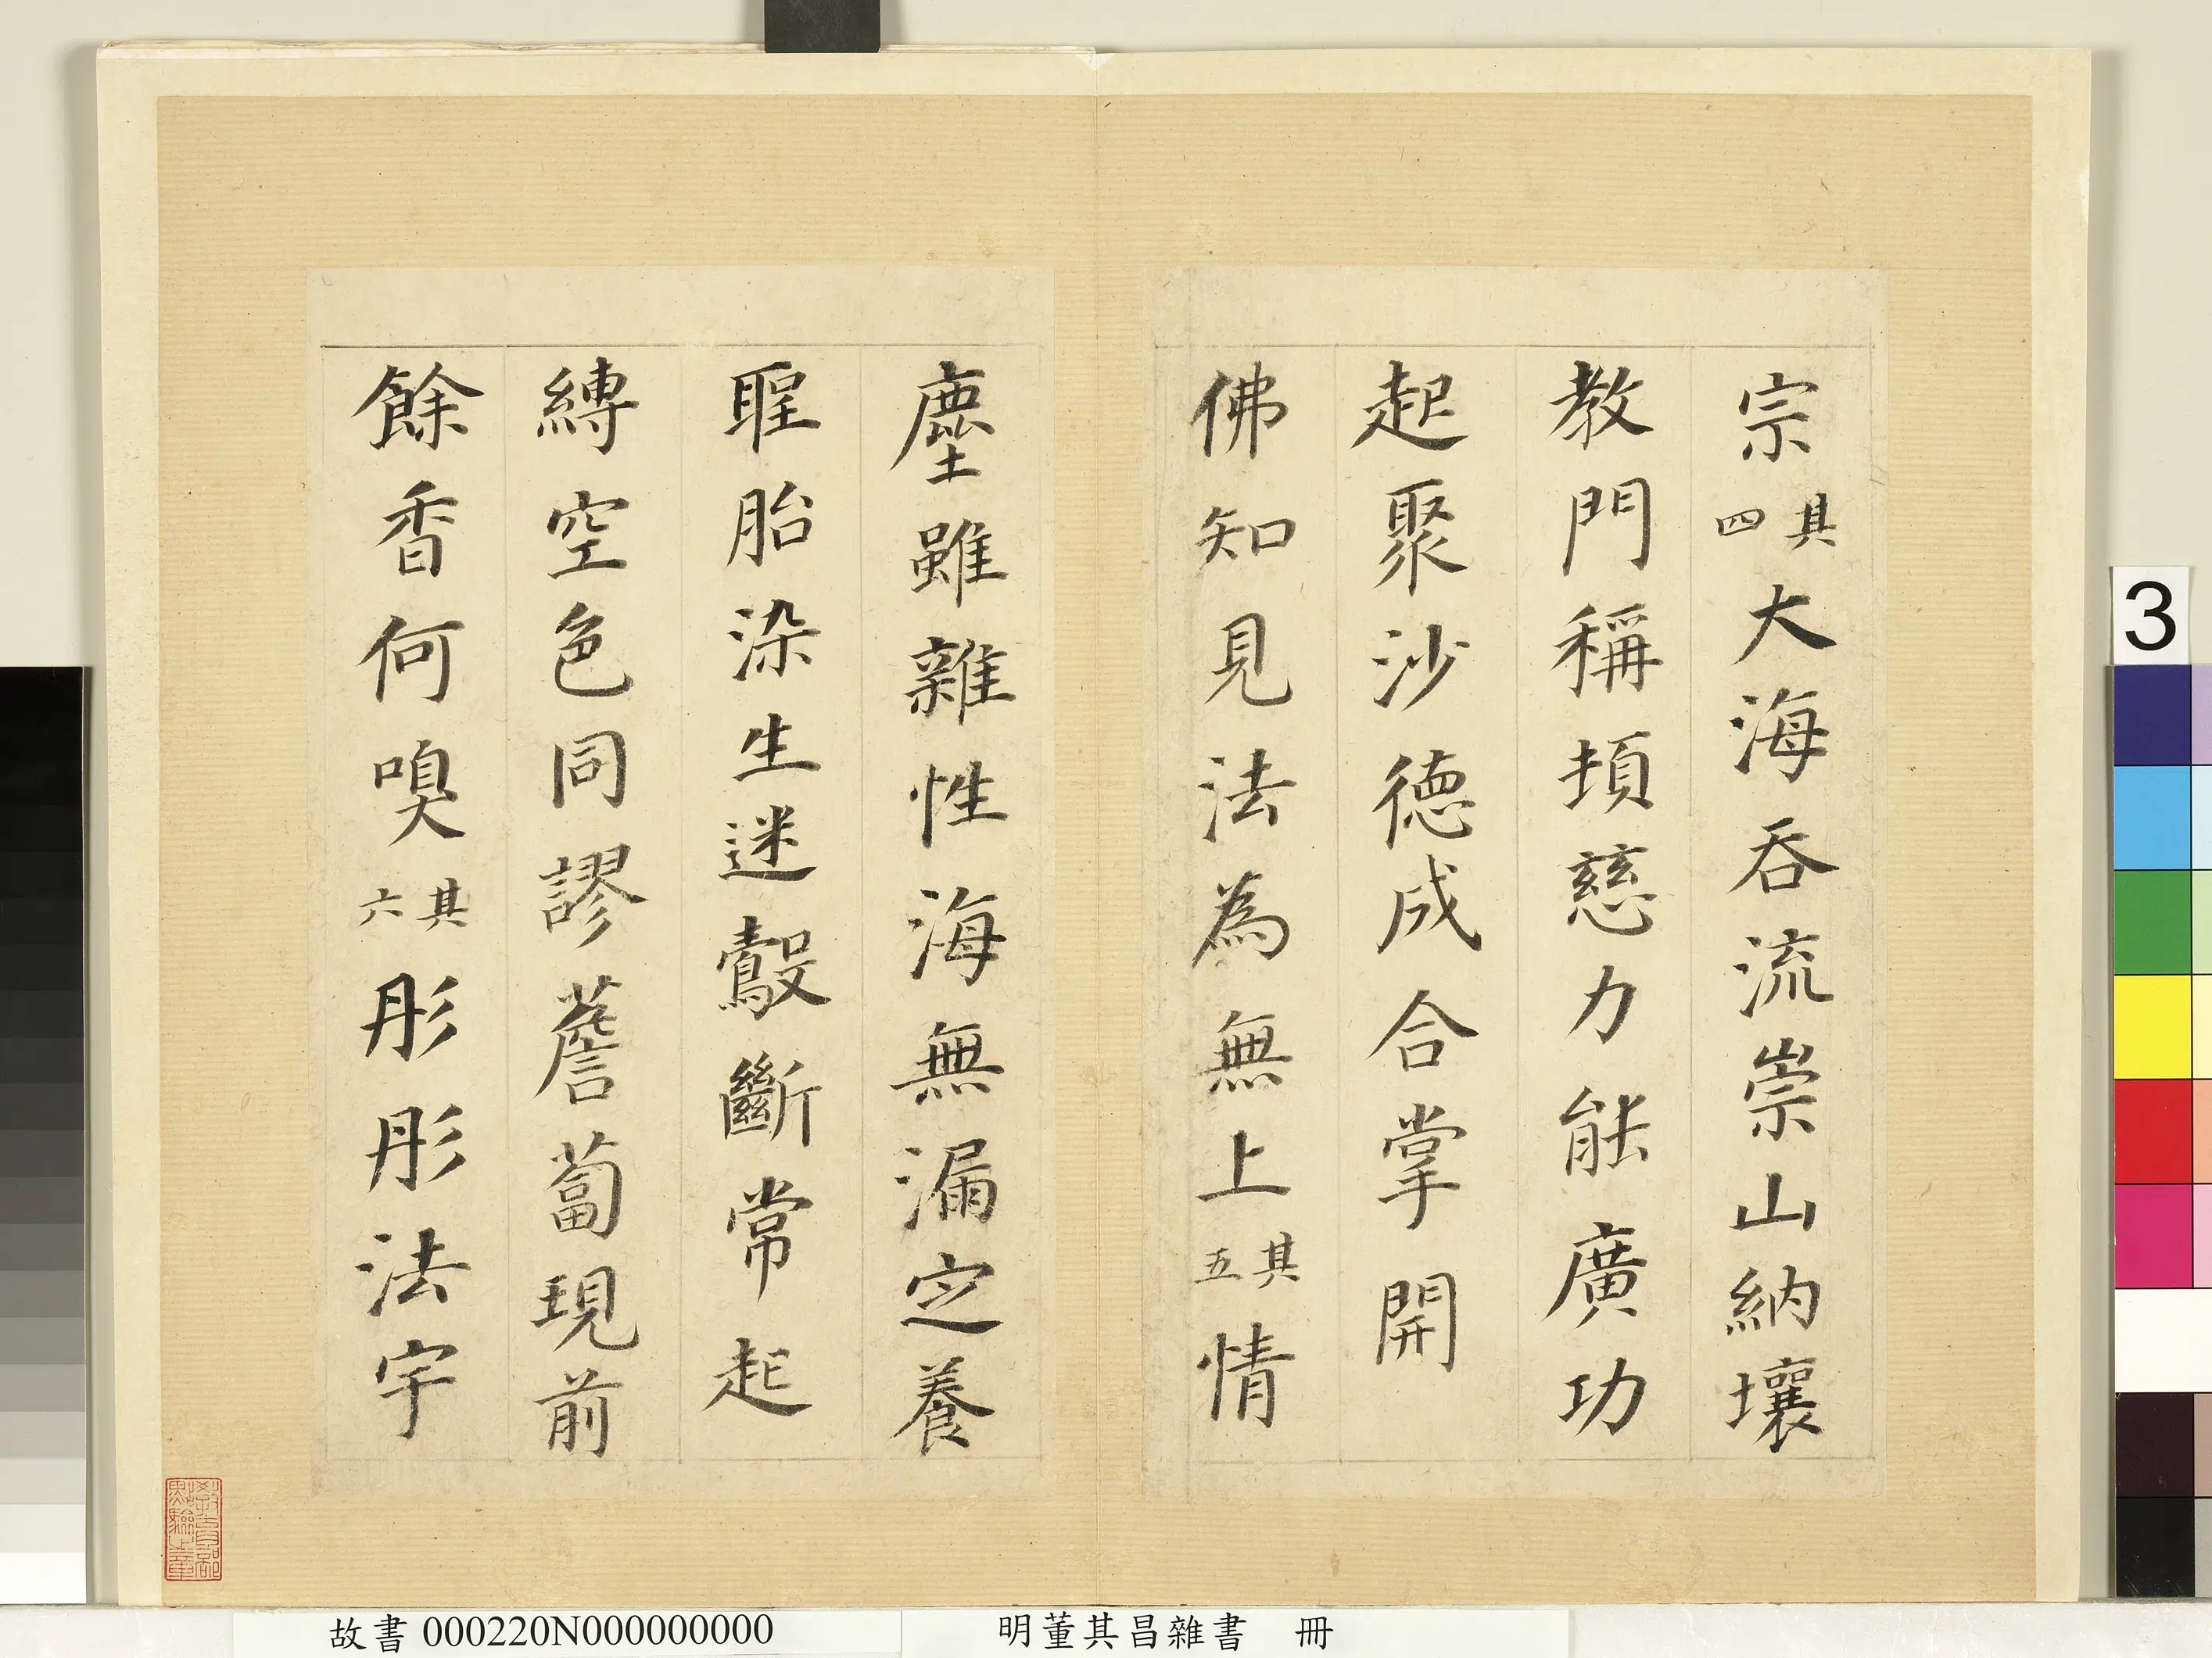 宗其四大海吞流崇山納壤
教門稱頓慈力能廣功
起聚沙德成合掌開
佛知見法為無上其五情
塵雖雜性海無漏定養
聖胎染生迷鷇斷常起
縛空色同謬薝蔔現前
餘香何嗅其六彤彤法宇
教育部點驗之章
3
故書000220N000000000
明董其昌雜書 冊